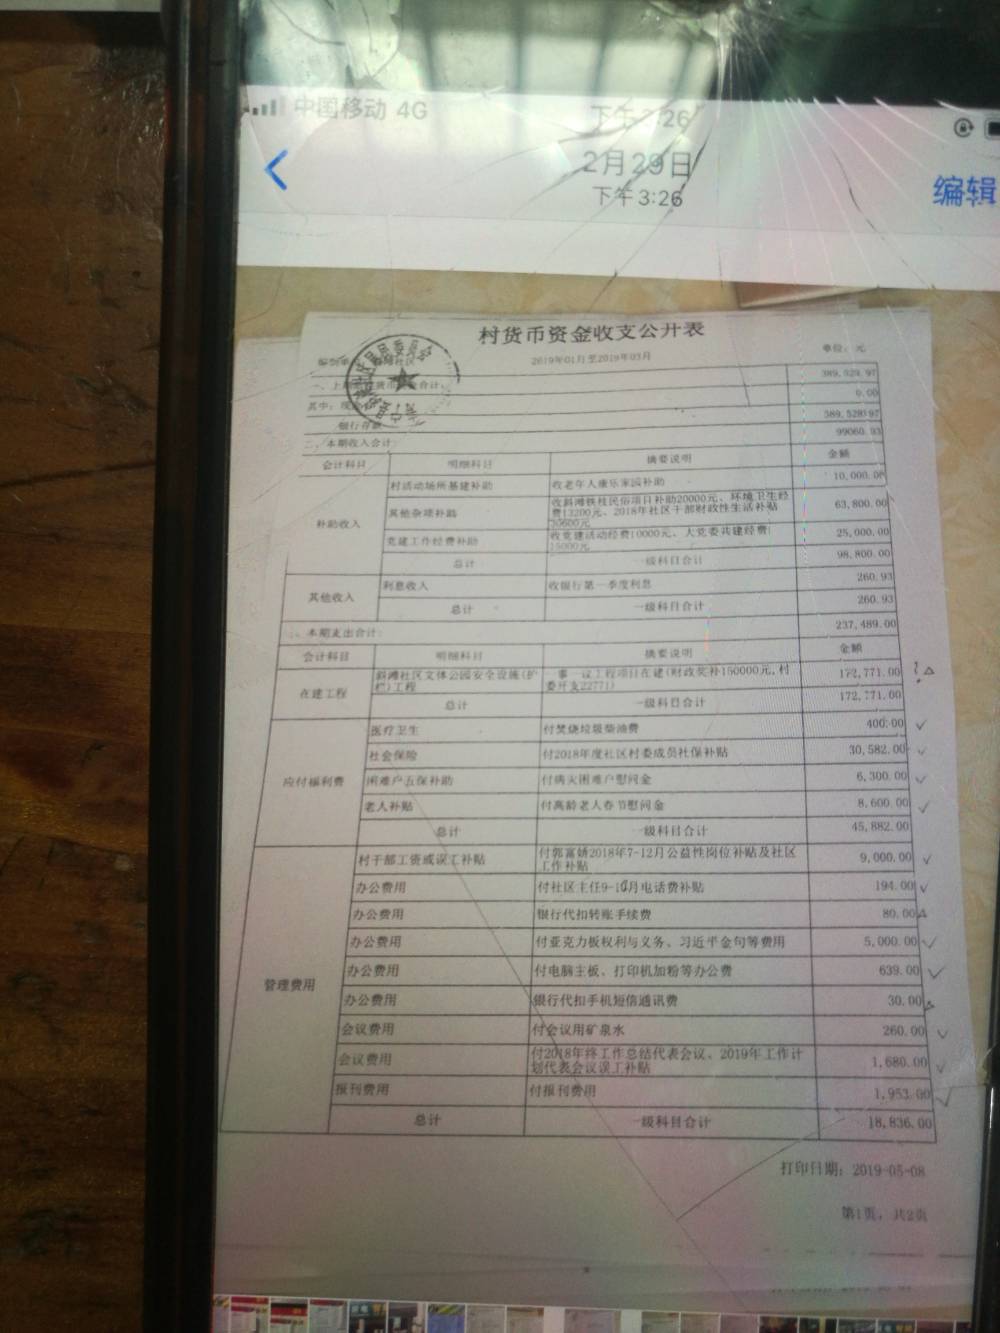 中国移动 4G
下午3:26
2月29日
下午3:26
编辑
村货币资金收支公开表
2019年01月至2019年03月
单位：元
389,528.97
0.00
其中：现
389,528.97
银行存款
二、本期收入合计： 99060.93
会计科目 明细科目 摘要说明 金额
补助收入
村活动场所基建补助 收老年人康乐家园补助 10,000.00
其他杂项补助 收斜滩铁枝民俗项目补助20000元、环境卫生经
费13200元、2018年社区干部财政性生活补贴
30600元 63,800.00
党建工作经费补助 收党建活动经费10000元、大党委共建经费
15000元 25,000.00
总计 一级科目合计 98,800.00
其他收入
利息收入 收银行第一季度利息 260.93
总计 一级科目合计 260.93
本期支出合计： 237,489.00
会计科目 明细科目 摘要说明 金额
在建工程
斜滩社区文体公园安全设施(护
栏)工程 一事一议工程项目在建(财政奖补150000元,村
委开支22771) 172,771.00
总计 一级科目合计 172,771.00
应付福利费
医疗卫生 付焚烧垃圾柴油费 400.00
社会保险 付2018年度社区村委成员社保补贴 30,582.00
困难户五保补助 付病灾困难户慰问金 6,300.00
老人补贴 付高龄老人春节慰问金 8,600.00
总计 一级科目合计 45,882.00
管理费用
村干部工资或误工补贴 付郭富娇2018年7-12月公益性岗位补贴及社区
工作补贴 9,000.00
办公费用 付社区主任9-10月电话费补贴 194.00
办公费用 银行代扣转账手续费 80.00
办公费用 付亚克力板权利与义务、习近平金句等费用 5,000.00
办公费用 付电脑主板、打印机加粉等办公费 639.00
办公费用 银行代扣手机短信通讯费 30.00
会议费用 付会议用矿泉水 260.00
会议费用 付2018年终工作总结代表会议、2019年工作计
划代表会议误工补贴 1,680.00
报刊费用 付报刊费用 1,953.00
总计 一级科目合计 18,836.00
打印日期：2019-05-08
第1页，共2页